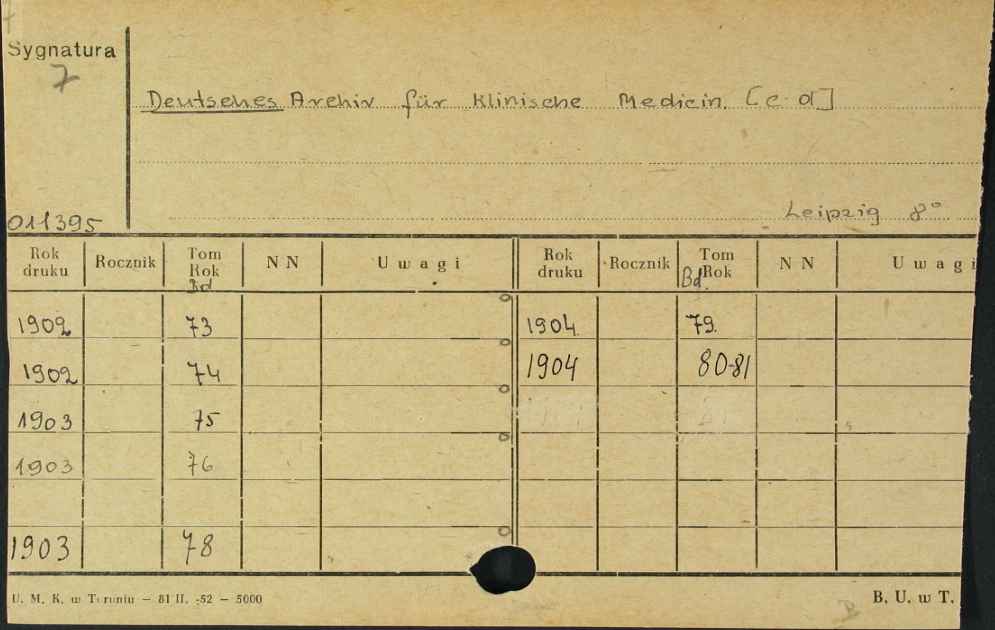 Sygnatura
7
Deutsches Archiv für Klinische Medicin. [c d]
Leipzig 8°
011395
Rok druku Rocznik Tom Rok Bd NN Uwagi Rok druku Rocznik Tom Rok Bd. NN Uwagi
1902 73 1904 79.
1902 74 1904 80-81
1903 75
1903 76
1903 78
U. M. K. w Toruniu — 81 II. -52 — 5000 B. U. w T.